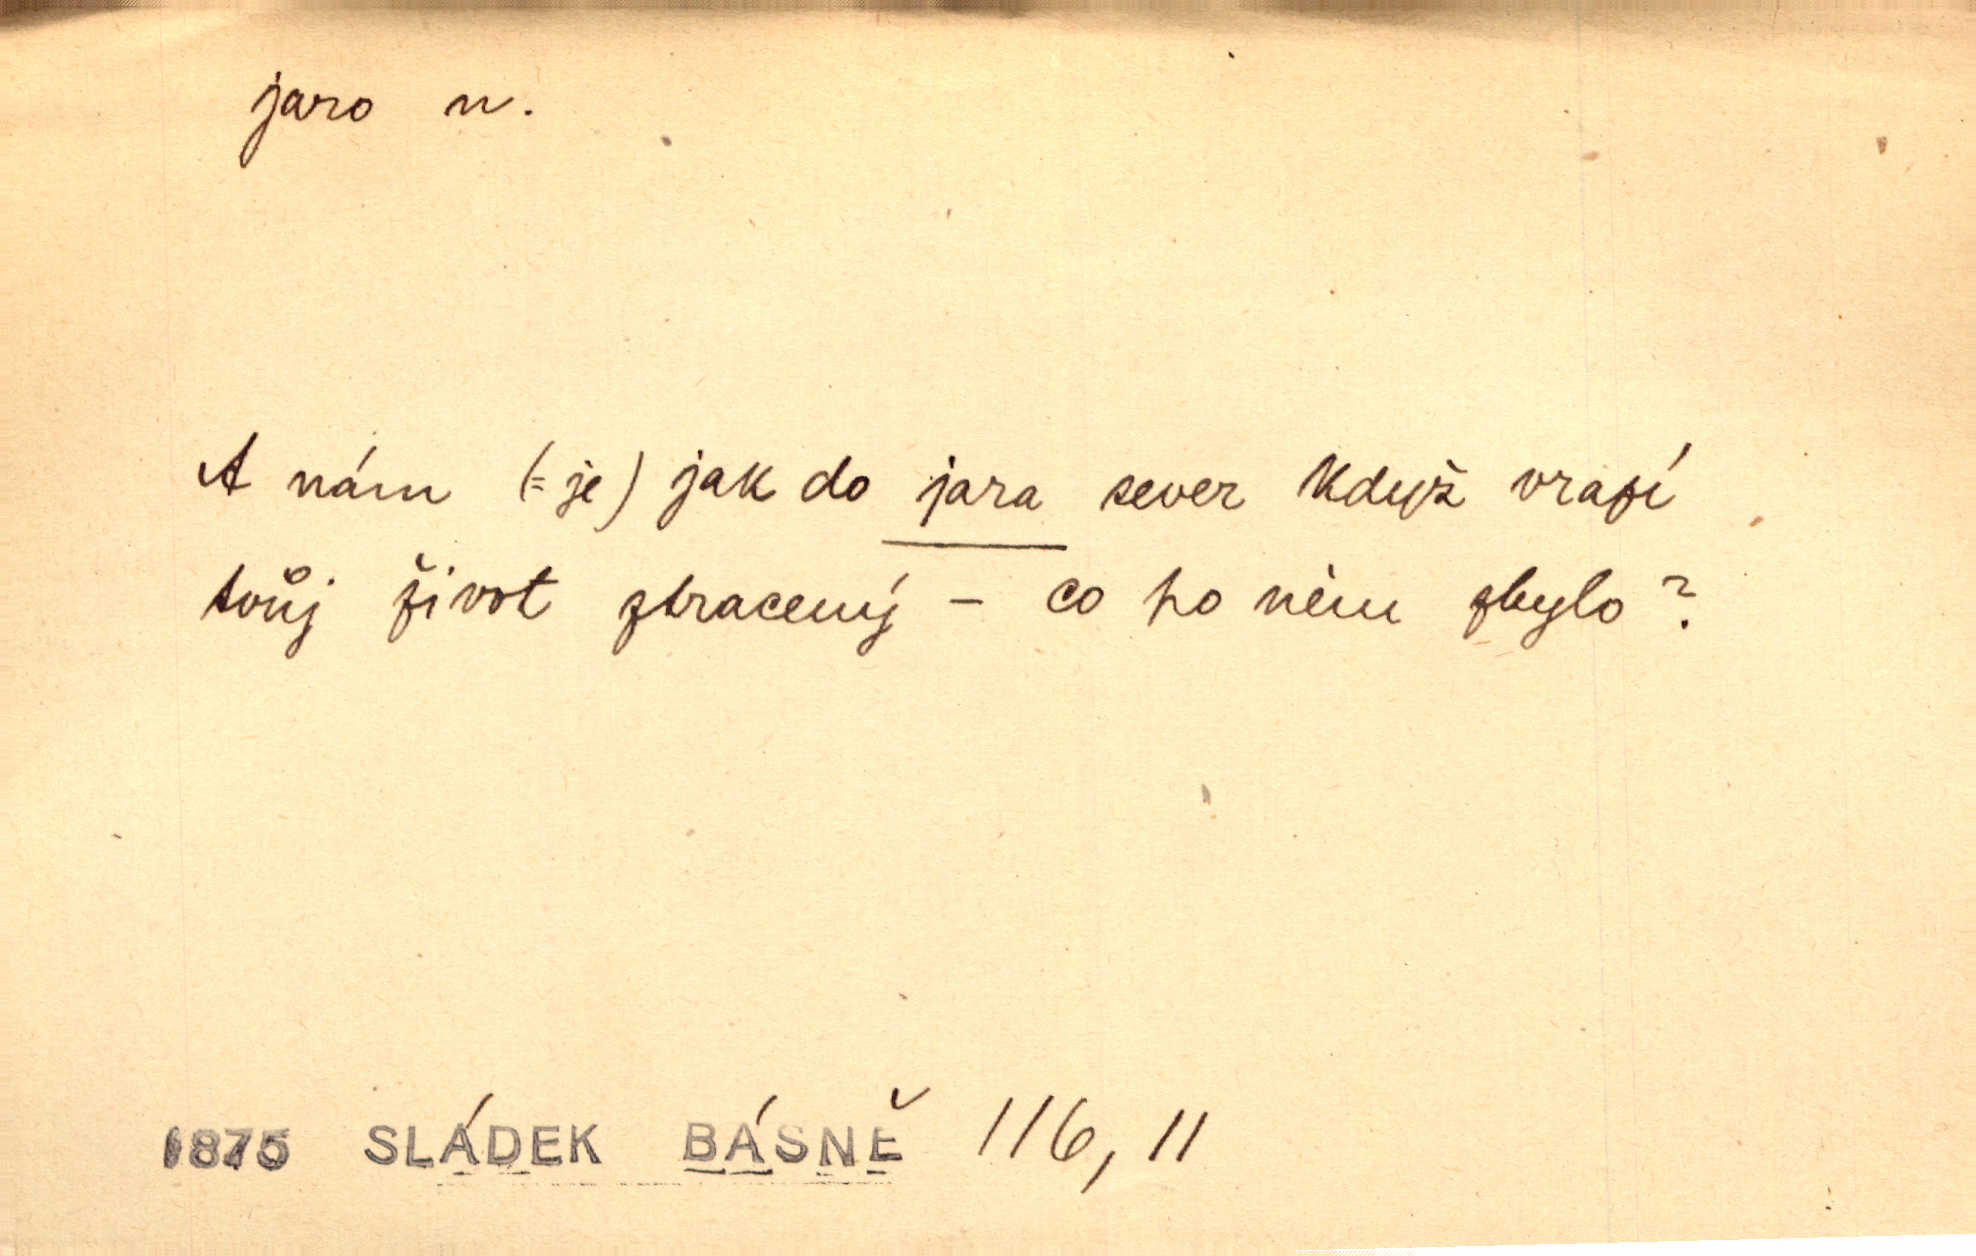 jaro n.
A nám (= je) jak do jara sever když vrazí
tvůj život ztracený - co ho něm zbylo?
1875 SLÁDEK BÁSNĚ 116, 11